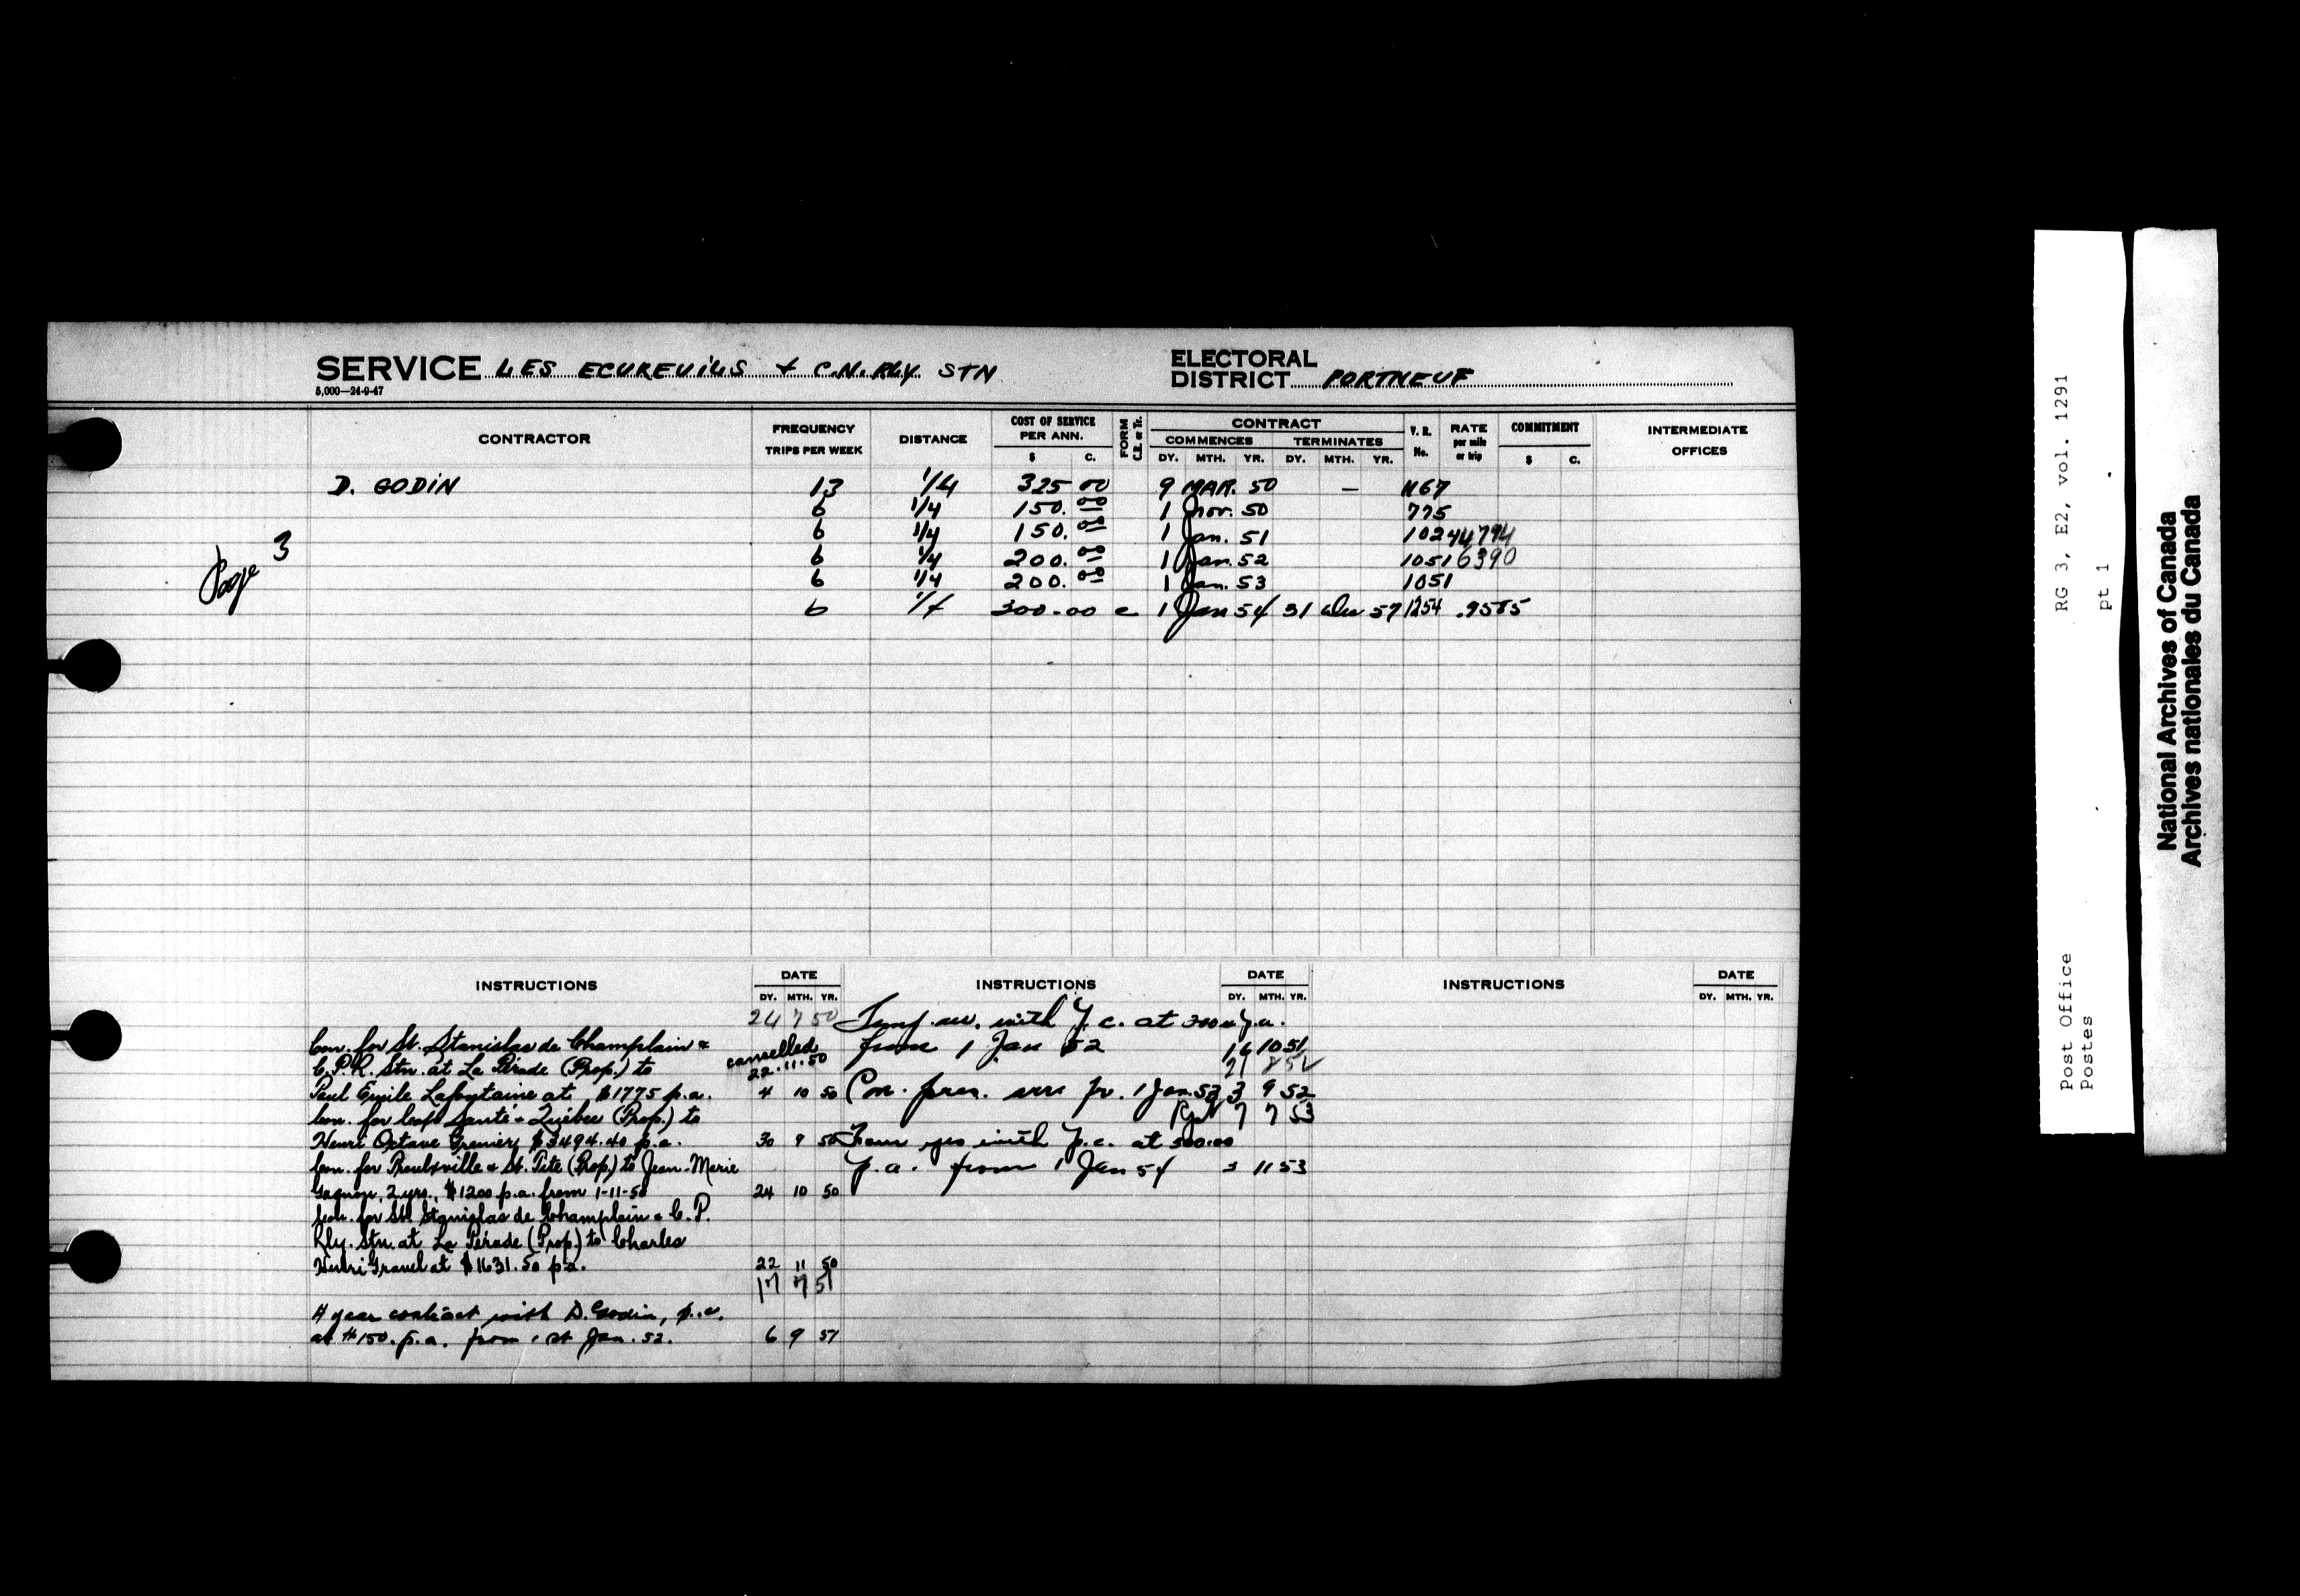 SERVICE LES ECUREUILS & C.N. RLY STN
ELECTORAL DISTRICT PORTNEUF
5,000—24-9-47
CONTRACTOR
FREQUENCY TRIPS PER WEEK
DISTANCE
COST OF SERVICE PER ANN. $ C.
FORM C.E. or Tr.
CONTRACT
COMMENCES DY. MTH. YR.
TERMINATES DY. MTH. YR.
V. R. No.
RATE per mile or trip
COMMITMENT $ C.
INTERMEDIATE OFFICES
D. GODIN 13 1/4 325 00 9 MAR. 50 — 1167
6 1/4 150.00 1 Nov. 50 775
6 1/4 150.00 1 Jan. 51 1024 4794
6 1/4 200.00 1 Jan. 52 1051 6390
6 1/4 200.00 1 Jan. 53 1051
6 1/4 300.00 c 1 Jan 54 31 Dec 57 1254 .9585
Page 3
INSTRUCTIONS DATE DY. MTH. YR.
INSTRUCTIONS DATE DY. MTH. YR.
INSTRUCTIONS DATE DY. MTH. YR.
24 7 50
Con. for St. Stanislas de Champlain &
C.P.R. Stn. at La Pérade (Prop.) to cancelled 22.11.50
Paul Emile Lafontaine at $1775 p.a. 4 10 50
Con. for Cap Santé & Québec (Prop.) to
Henri Octave Grenier, $3494.40 p.a. 30 9 50
Con. for Proulxville & St. Tite (Prop.) to Jean-Marie
Gagnon, 2 yrs., $1200 p.a. from 1-11-50 24 10 50
Con. for St. Stanislas de Champlain & C.P.
Rly. Stn. at La Pérade (Prop.) to Charles
Henri Gravel at $1631.50 p.a. 22 11 50
17 7 51
4 year contract with D. Godin, p.c.
at $150. p.a. from 1st Jan. 52. 6 9 51
Temp. with p.c. at p.a.
from 1 Jan 52 16 10 51
21 8 52
Con. pres. fr. 1 Jan 53 3 9 52
7 7 53
Four yrs with p.c. at 300.00
p.a. from 1 Jan 54 3 11 53
RG 3, E2, vol. 1291
pt 1
Post Office
Postes
National Archives of Canada
Archives nationales du Canada